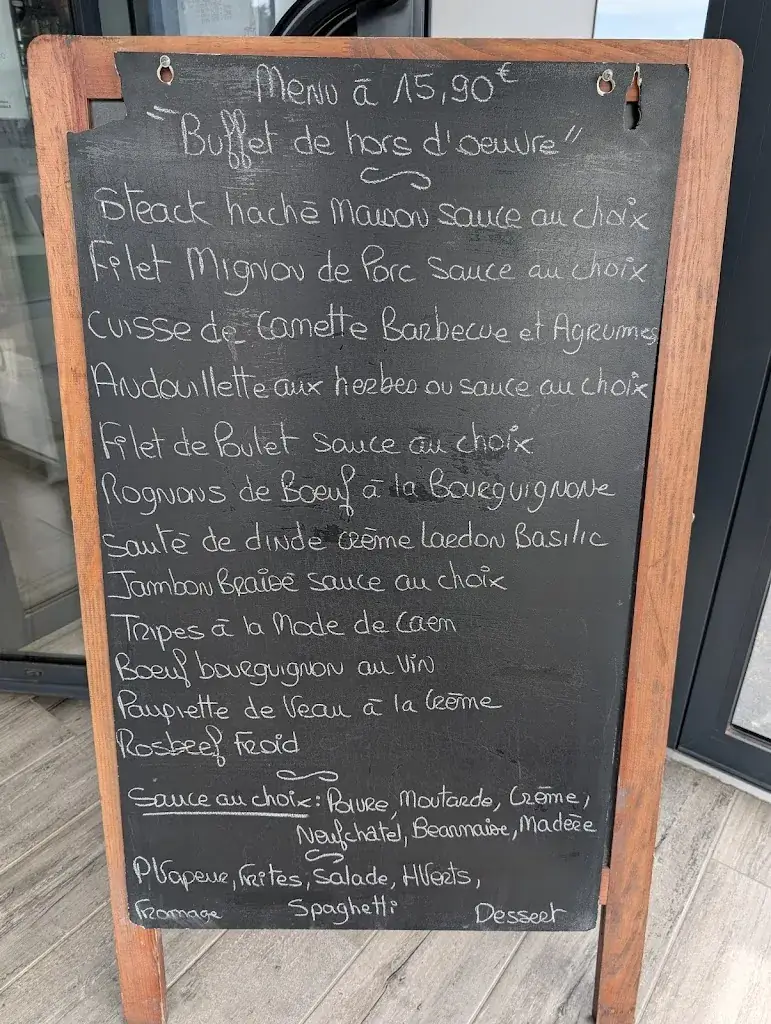 Menu à 15,90€
"Buffet de hors d'oeuvre"
Steack haché Maison sauce au choix
Filet Mignon de Porc Sauce au choix
Cuisse de Canette Barbecue et Agrumes
Andouillette aux herbes ou sauce au choix
Filet de Poulet sauce au choix
Rognons de Boeuf à la Bourguignone
Sauté de dinde crème Lardon Basilic
Jambon Braisé sauce au choix
Tripes à la Mode de Caen
Boeuf bourguignon au Vin
Paupiette de Veau à la Crème
Rosbeef Froid
Sauce au choix : Poivre, Moutarde, Crème,
Neufchâtel, Bearnaise, Madère
PVapeur, Frites, Salade, HVerts,
Fromage Spaghetti Dessert